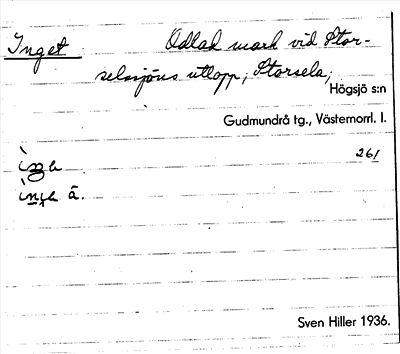 Inget : Odlad mark vid Stor-
selesjöns utlopp, Storsela,
Högsjö s:n
Gudmundrå tg., Västernorrl. l.
261
ä.
Sven Hiller 1936.